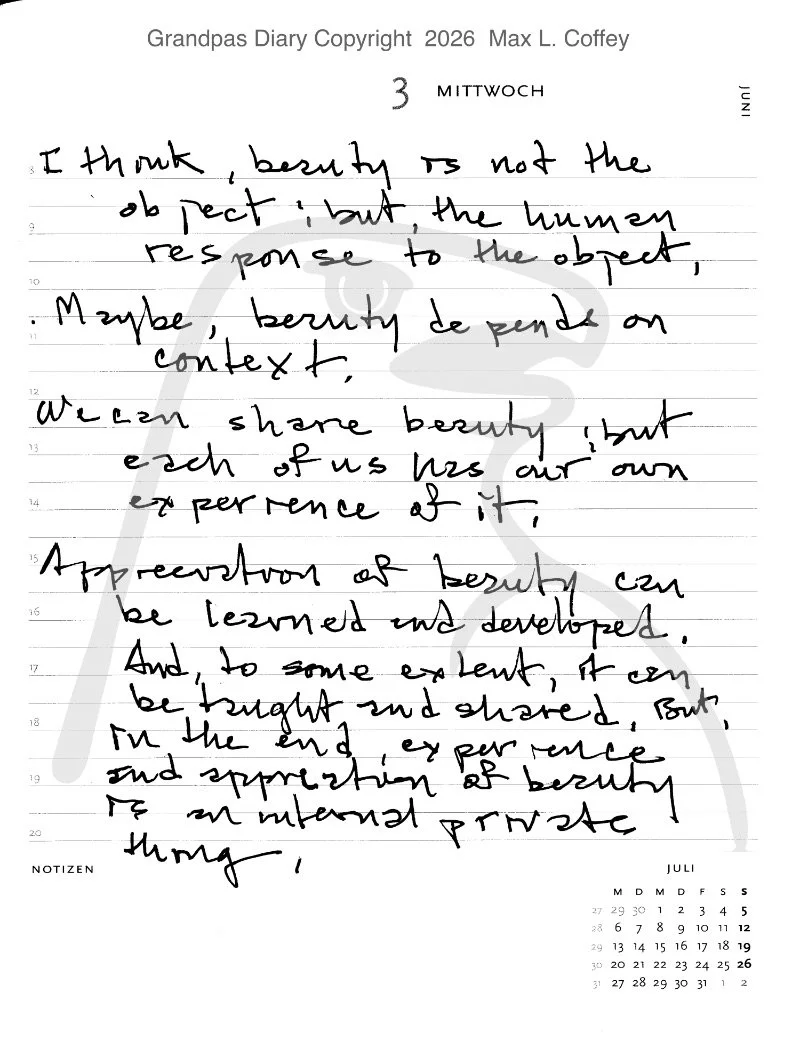 Grandpas Diary Copyright 2026 Max L. Coffey
3 MITTWOCH
JUNI
I think, beauty is not the
object; but, the human
response to the object,
. Maybe, beauty depends on
context.
We can share beauty; but
each of us has our own
experience of it.
Appreciation of beauty can
be learned and developed.
And, to some extent, it can
be taught and shared. But,
in the end, experience
and appreation of beauty
is an internal private
thing.
8
9
10
11
12
13
14
15
16
17
18
19
20
NOTIZEN
JULI
M D M D F S S
27 29 30 1 2 3 4 5
28 6 7 8 9 10 11 12
29 13 14 15 16 17 18 19
30 20 21 22 23 24 25 26
31 27 28 29 30 31 1 2